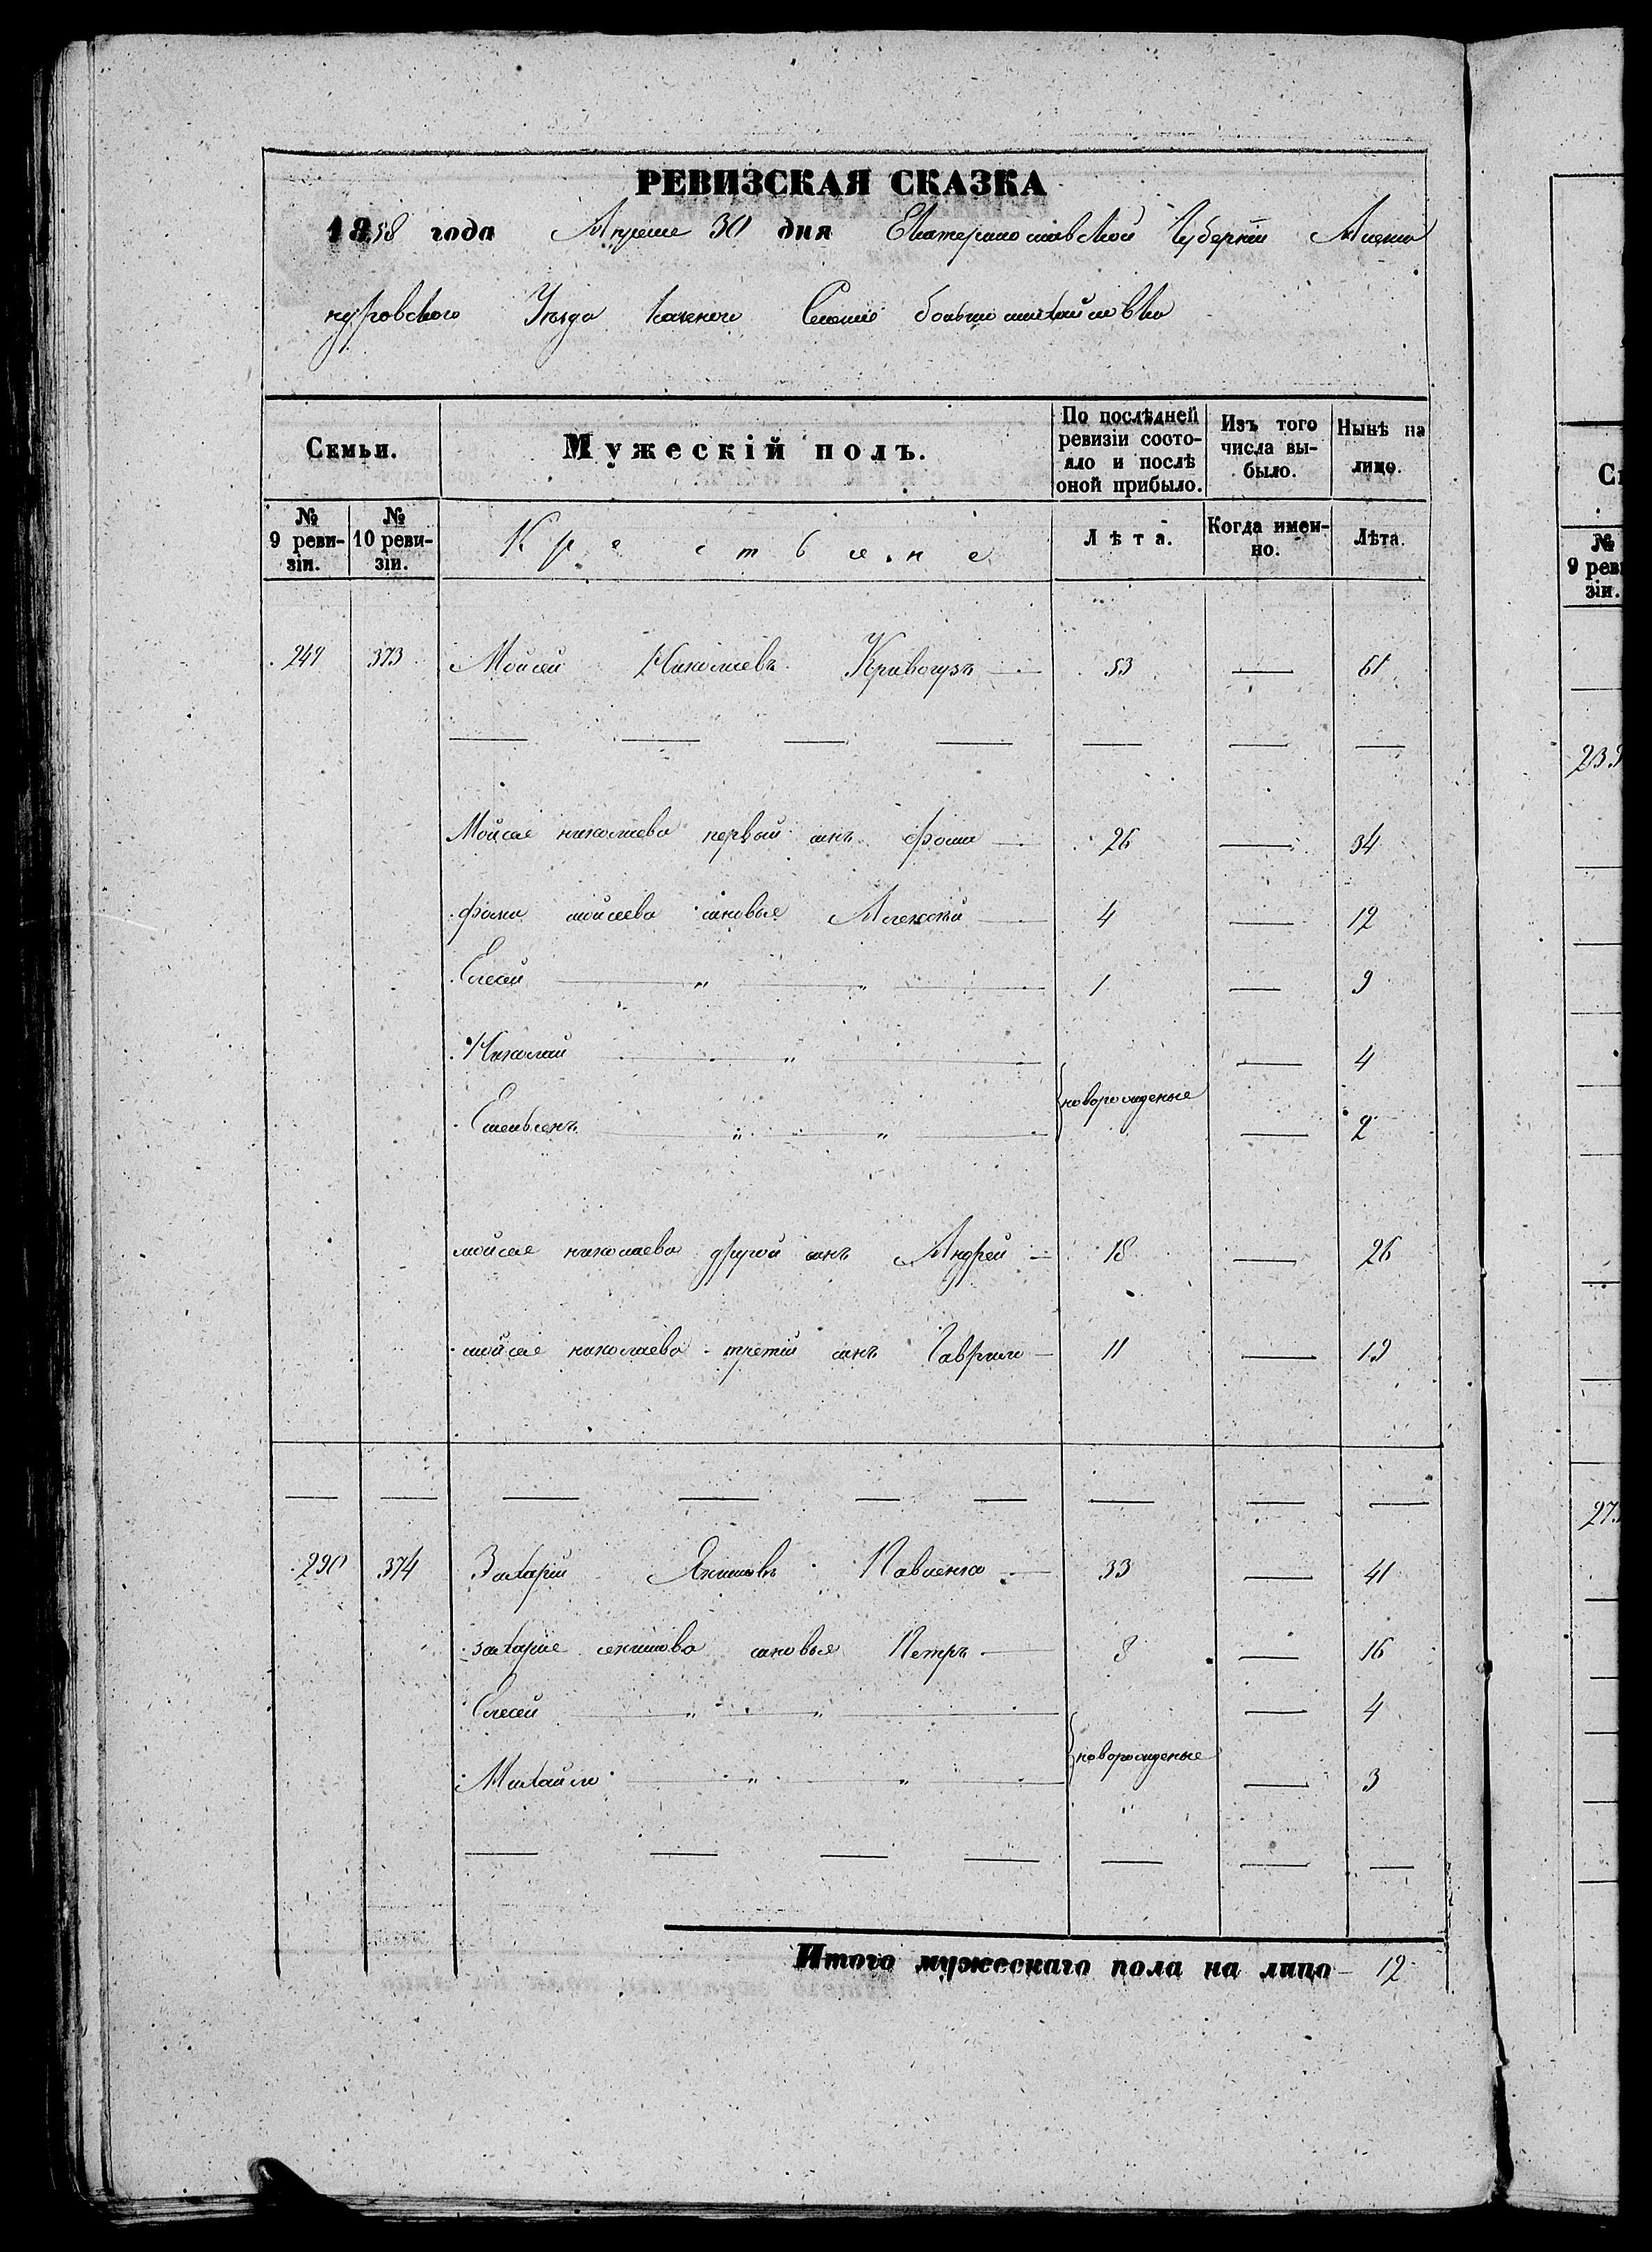 РЕВИЗСКАЯ СКАЗКА
1858 года Апреля 30 дня Екатеринославской Губернии Алекса
ндровского Уезда Казенного Селения большемихайловка
Семьи.
Мужескій полъ.
По послѣдней ревизіи состояло и послѣ оной прибыло.
Изъ того числа выбыло.
Нынѣ на лицо.
№ 9 ревизіи.
№ 10 ревизіи.
Крестьяне
Лѣта.
Когда именно.
Лѣта.
373 Мойсей Николаевъ 53 — 61
Мойсея николаева первый сынъ фома 26 — 34
фомы мойсеева сыновья Алексей 4 — 12
Елесей " " 1 — 9
Николай " — 4
новорожденые
Емельянъ " " — 2
мойсея николаева другой сынъ Андрей 18 — 26
мойсея николаева третій сынъ Гаврило 11 — 19
290 374 Захарій Павленко 33 — 41
захарія сыновья Петръ 8 — 16
Елесей " " — 4
новорожденые
Михайло " " — 3
Итого мужескаго пола на лицо 12
Се
№ 9 реви
зіи.